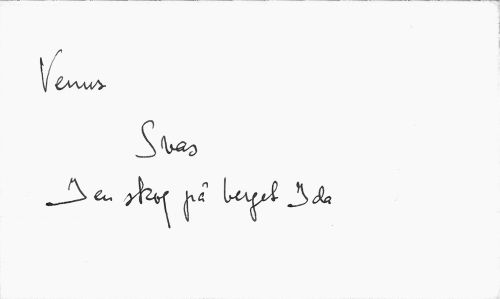 Venus
Svas
I en skog på berget Ida